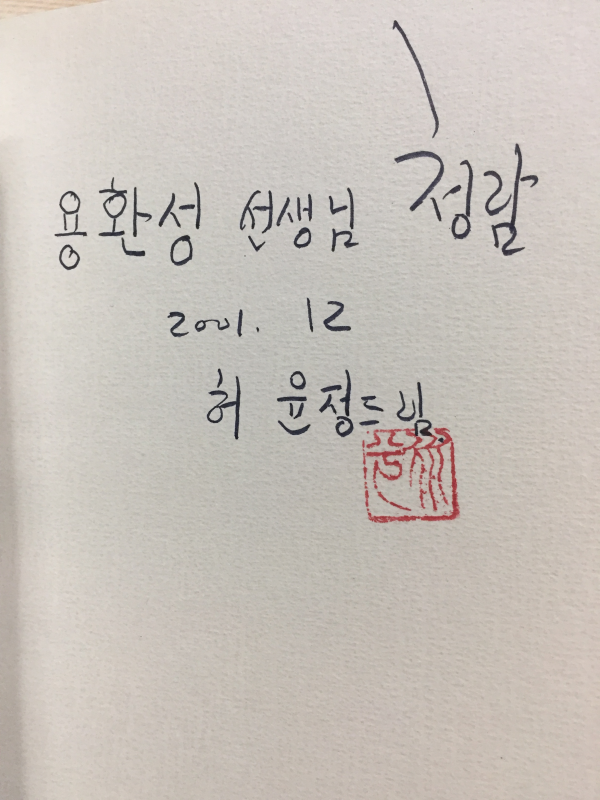 용환성 선생님 정람
2001. 12
허윤정드림.